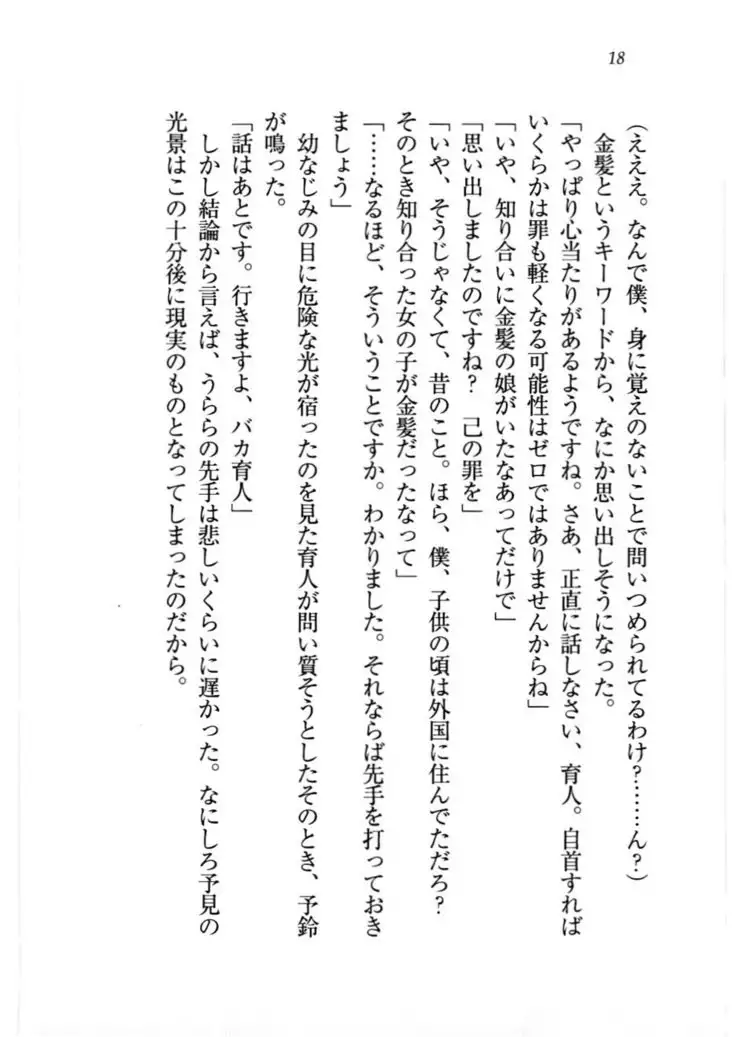 18
（えええ。なんで僕、身に覚えのないことで問いつめられてるわけ？………ん？）
　金髪というキーワードから、なにか思い出しそうになった。
「やっぱり心当たりがあるようですね。さあ、正直に話しなさい、育人。自首すれば
いくらかは罪も軽くなる可能性はゼロではありませんからね」
「いや、知り合いに金髪の娘がいたなあってだけで」
「思い出しましたのですね？　己の罪を」
「いや、そうじゃなくて、昔のこと。ほら、僕、子供の頃は外国に住んでただろ？
そのとき知り合った女の子が金髪だったなって」
「……なるほど、そういうことですか。わかりました。それならば先手を打っておき
ましょう」
　幼なじみの目に危険な光が宿ったのを見た育人が問い質そうとしたそのとき、予鈴
が鳴った。
「話はあとです。行きますよ、バカ育人」
　しかし結論から言えば、うららの先手は悲しいくらいに遅かった。なにしろ予見の
光景はこの十分後に現実のものとなってしまったのだから。